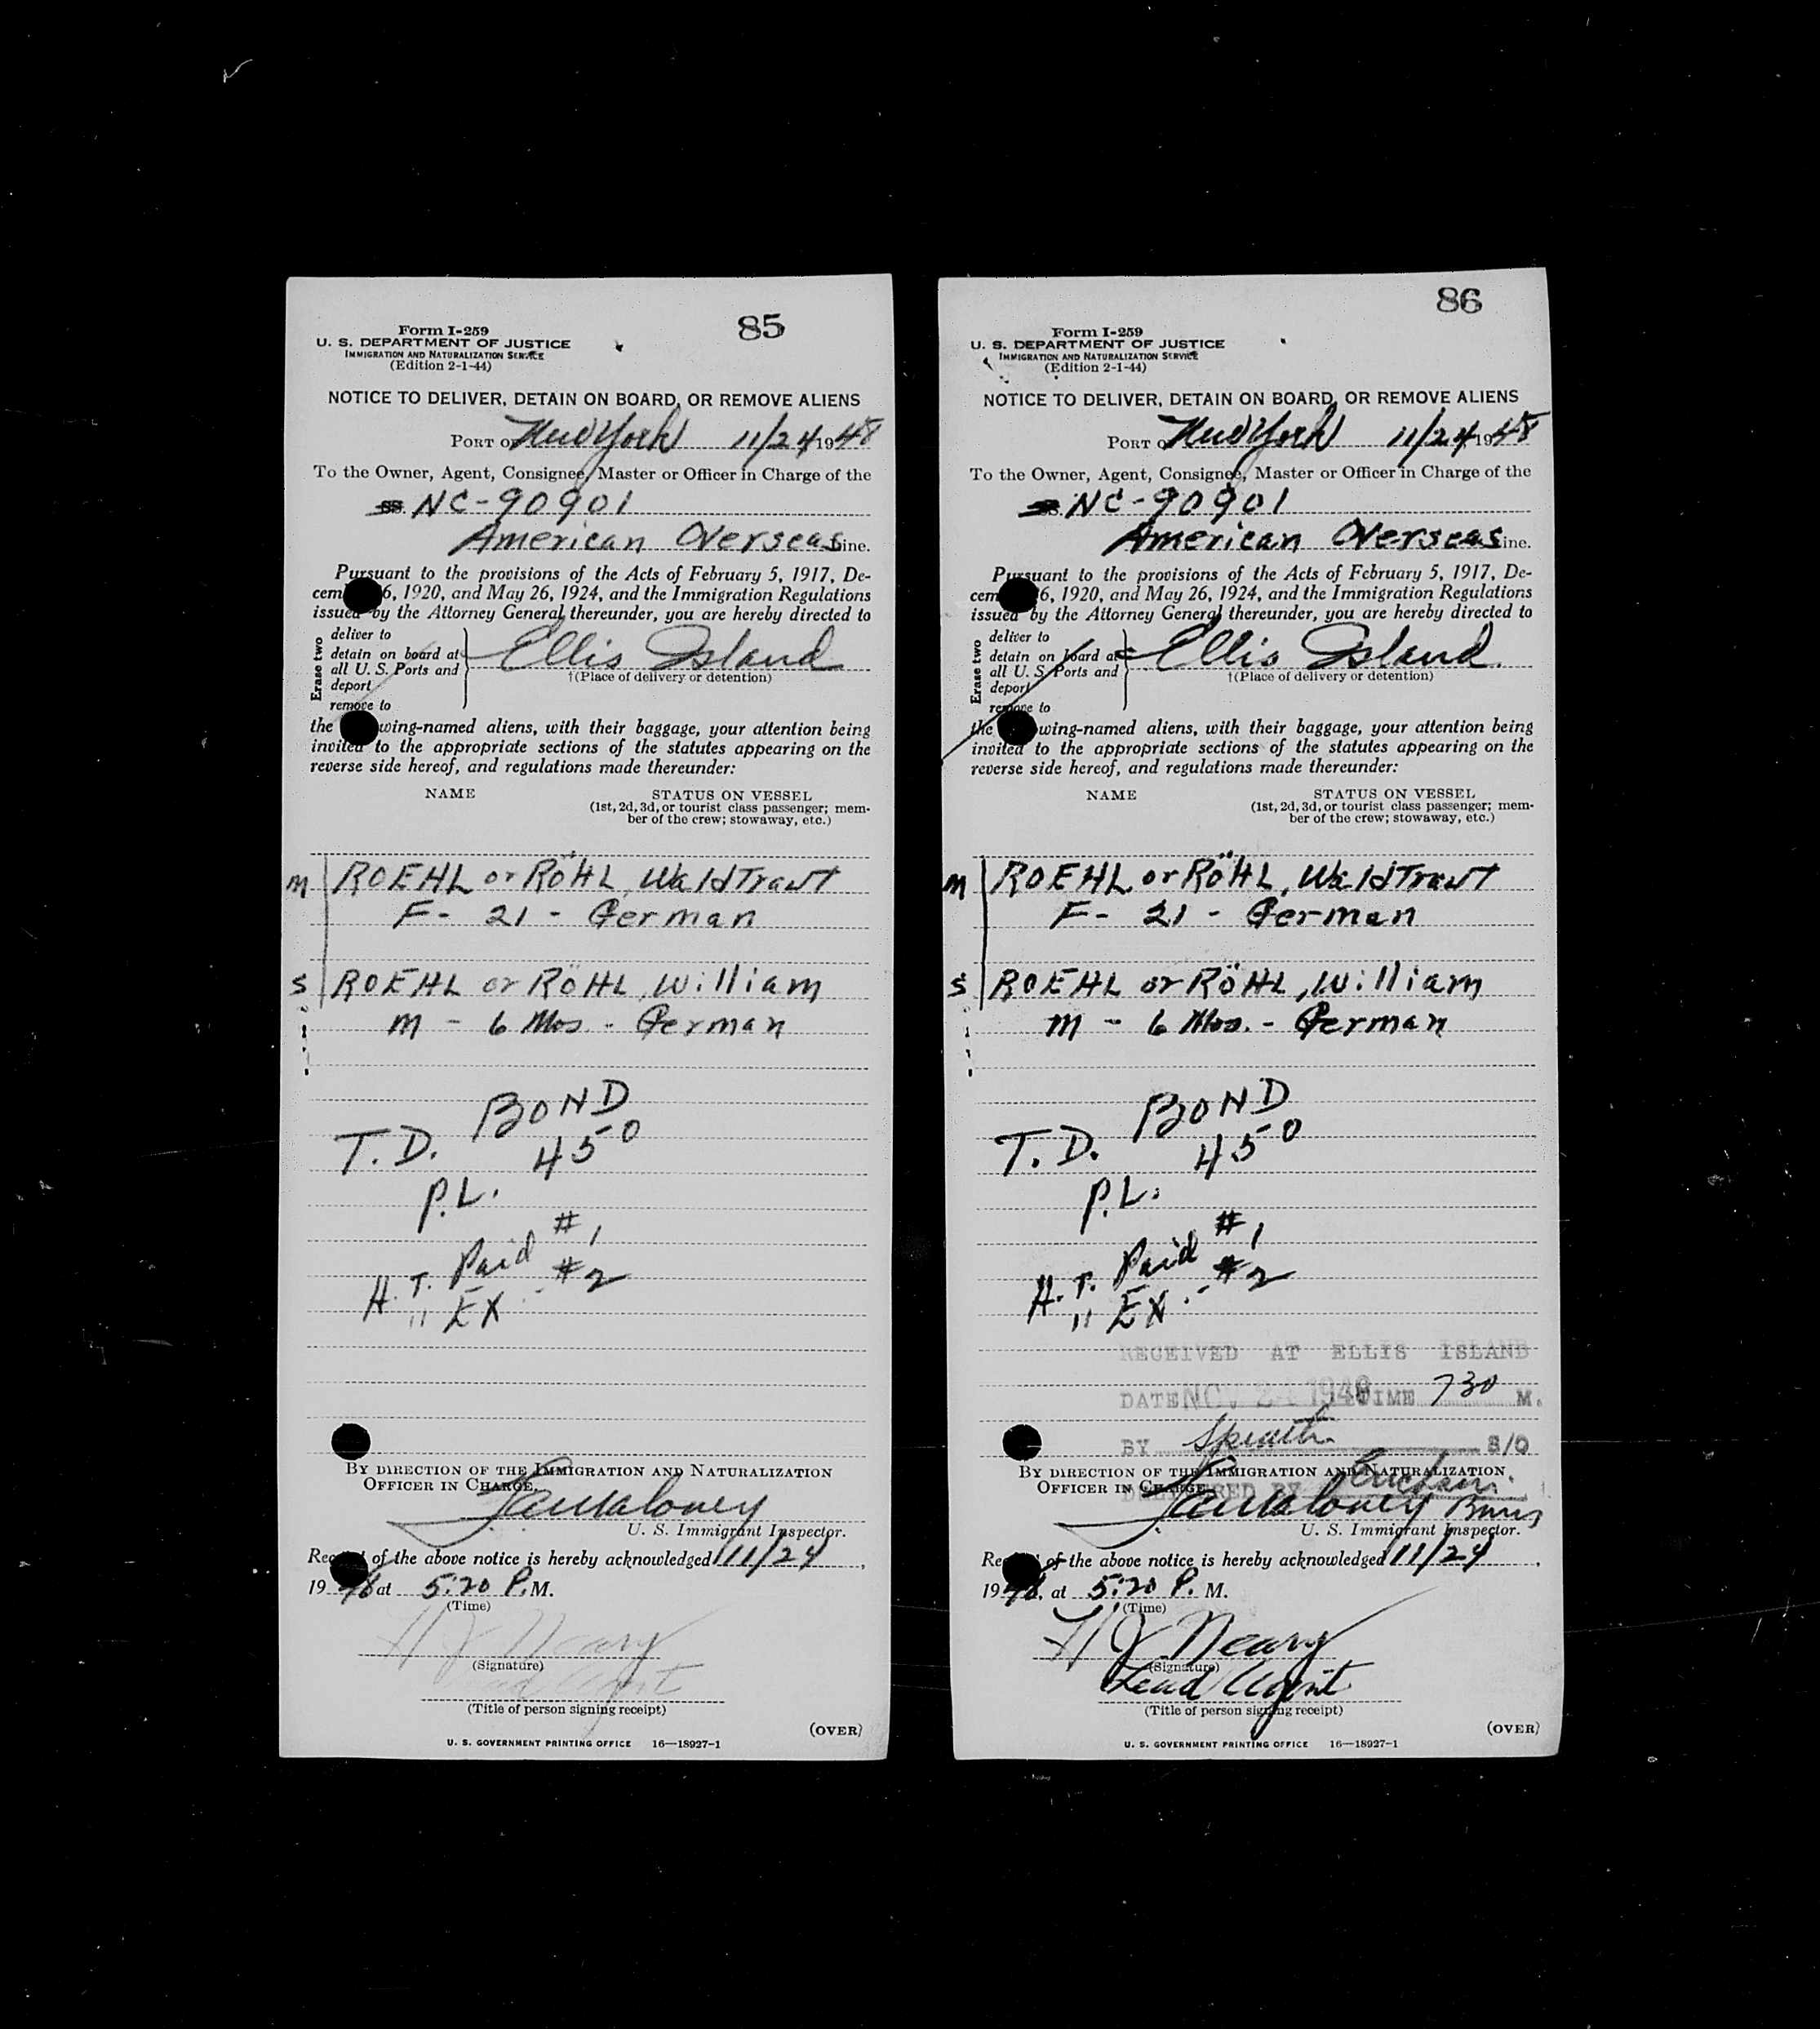 85
Form I-259
U. S. DEPARTMENT OF JUSTICE
IMMIGRATION AND NATURALIZATION SERVICE
(Edition 2-1-44)
NOTICE TO DELIVER, DETAIN ON BOARD, OR REMOVE ALIENS
PORT OF New York 11/24 1948
To the Owner, Agent, Consignee, Master or Officer in Charge of the
SS. NC-90901
American Overseas Line.
Pursuant to the provisions of the Acts of February 5, 1917, De-
cem 6, 1920, and May 26, 1924, and the Immigration Regulations
issued by the Attorney General thereunder, you are hereby directed to
Erase two
deliver to
detain on board at
all U. S. Ports and
deport
remove to
Ellis Island
†(Place of delivery or detention)
the wing-named aliens, with their baggage, your attention being
invited to the appropriate sections of the statutes appearing on the
reverse side hereof, and regulations made thereunder:
NAME STATUS ON VESSEL
(1st, 2d, 3d, or tourist class passenger; mem-
ber of the crew; stowaway, etc.)
M ROEHL or RÖHL, WaldTrawt
F - 21 - German
S ROEHL or RÖHL, William
M - 6 Mos. - German
BOND
T.D. 450
P.L.
H.T. Paid #1
" EX.- #2
BY DIRECTION OF THE IMMIGRATION AND NATURALIZATION
OFFICER IN CHARGE.
U. S. Immigrant Inspector.
Rec of the above notice is hereby acknowledged 11/24,
1948 at 5:20 P.M.
(Time)
H J Neary
(Signature)
Lead Agent
(Title of person signing receipt)
(OVER)
U. S. GOVERNMENT PRINTING OFFICE 16—18927-1
86
Form I-259
U. S. DEPARTMENT OF JUSTICE
IMMIGRATION AND NATURALIZATION SERVICE
(Edition 2-1-44)
NOTICE TO DELIVER, DETAIN ON BOARD, OR REMOVE ALIENS
PORT O New York 11/24 1948
To the Owner, Agent, Consignee, Master or Officer in Charge of the
NC-90901
American Overseas Line.
Pursuant to the provisions of the Acts of February 5, 1917, De-
cem 6, 1920, and May 26, 1924, and the Immigration Regulations
issued by the Attorney General thereunder, you are hereby directed to
Erase two
deliver to
detain on board at
all U. S. Ports and
deport
remove to
Ellis Island
†(Place of delivery or detention)
the wing-named aliens, with their baggage, your attention being
invited to the appropriate sections of the statutes appearing on the
reverse side hereof, and regulations made thereunder:
NAME STATUS ON VESSEL
(1st, 2d, 3d, or tourist class passenger; mem-
ber of the crew; stowaway, etc.)
M ROEHL or RÖHL, WaldTrawt
F - 21 - German
S ROEHL or RÖHL, William
M - 6 Mos. - German
BOND
T.D. 450
P.L.
H.T. Paid #1
" EX.- #2
RECEIVED AT ELLIS ISLAND
DATE NOV 24 1948 TIME 730 M.
BY S/O
BY DIRECTION OF THE IMMIGRATION AND NATURALIZATION
OFFICER IN CHARGE.
DELIVERED BY
U. S. Immigrant Inspector.
Rec of the above notice is hereby acknowledged 11/24,
1948, at 5:20 P. M.
(Time)
H J Neary
(Signature)
Lead Agent
(Title of person signing receipt)
(OVER)
U. S. GOVERNMENT PRINTING OFFICE 16—18927-1